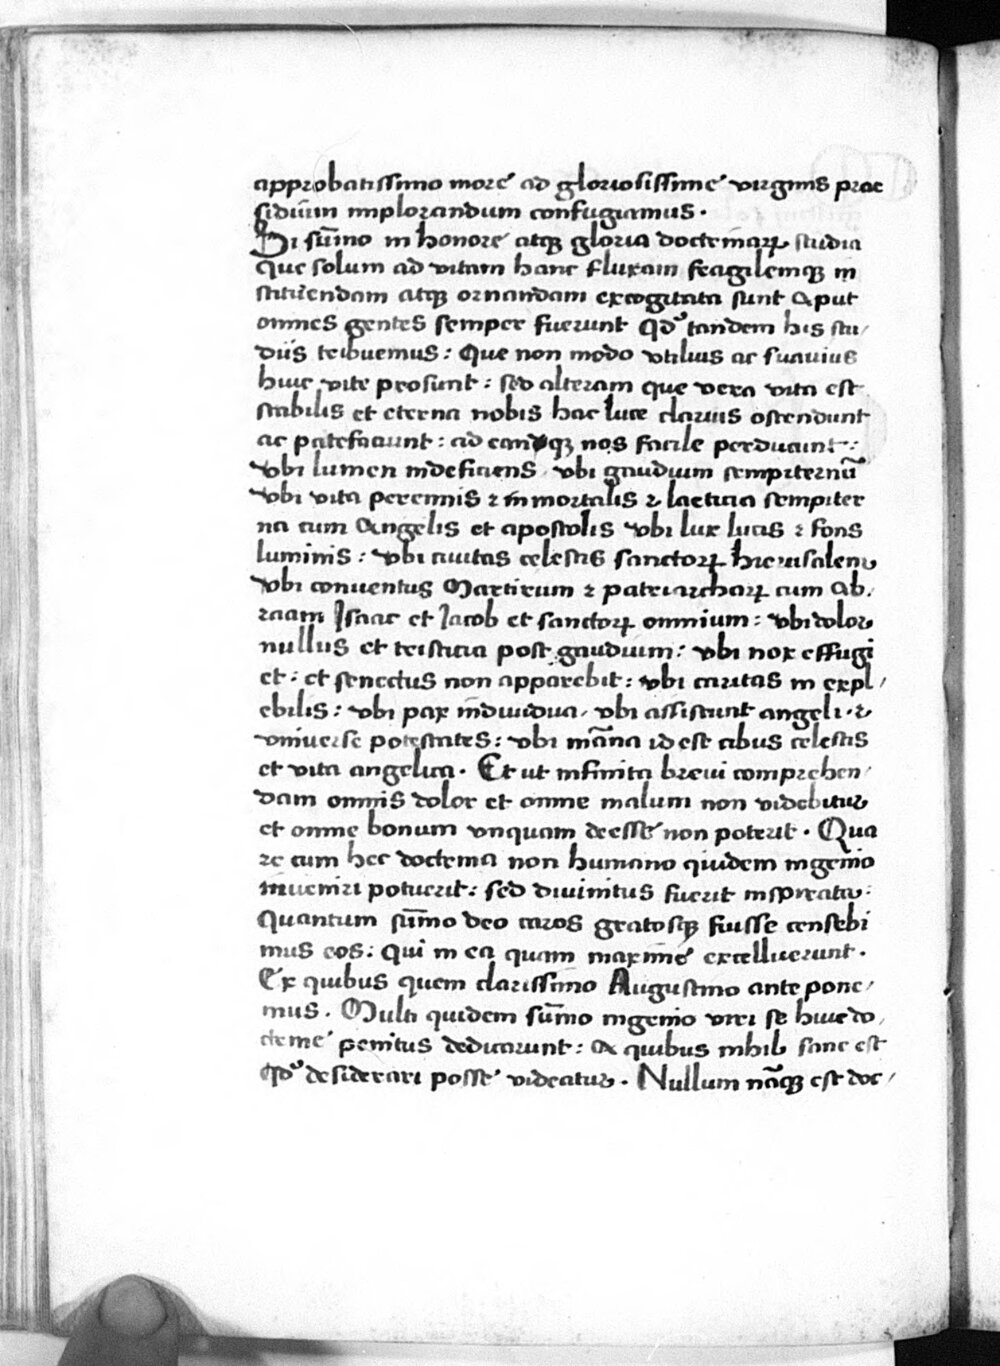 approbatissimo more ad gloriosissime virginis prae
sidium implorandum confugiamus.
Si sūmo in honore atqꝫ gloria doctrinarꝝ studia
que solum ad vitam hanc fluxam fragilemqꝫ in
stituendam atqꝫ ornandam excogitata sunt aput
omnes gentes semper fuerunt qd' tandem his stu/
diis tribuemus: Que non modo vtilius ac suauius
huic vite prosunt: sed alteram que vera vita est
stabilis et eterna nobis hac luce clarius ostendunt
ac patefaciunt: ad eandqꝫ nos facile perducunt:
vbi lumen indeficiens, vbi gaudium sempiternū
vbi vita perennis ⁊ inmortalis ⁊ laeticia sempiter
na cum Angelis et apostolis vbi lux lucis ⁊ fons
luminis: vbi ciuitas celestis sanctorꝝ hierusalem
vbi conuentus Martirum ⁊ patriarcharꝝ cum Ab/
raam Isaac et Iacob et sanctorꝝ omnium: vbi dolor
nullus et tristicia post gaudium: vbi nox effugi
et: et senectus non apparebit: vbi caritas in expl/
ebilis: vbi pax indiuidua, vbi assistunt angeli. ⁊
vniuerse potestates: vbi māna id est cibus celestis
et vita angelica. Et ut infinita breui comprehen/
dam omnis dolor et omne malum non videbitur
et omne bonum vnquam deesse non poterit. Qua
re cum hec doctrina non humano quidem ingenio
inueniri potuerit: sed diuinitus fuerit inspirata:
quantum sūmo deo caros gratosqꝫ fuisse censebi
mus eos: qui in ea quam maxime excelluerunt.
Ex quibus quem clarissimo Augustino ante pone/
mus. Multi quidem sūmo ingenio viri se huic do/
ctrine penitus dedicarunt: A quibus nihil sane est
qd' desiderari posse videatur. Nullum nāqꝫ est doc/